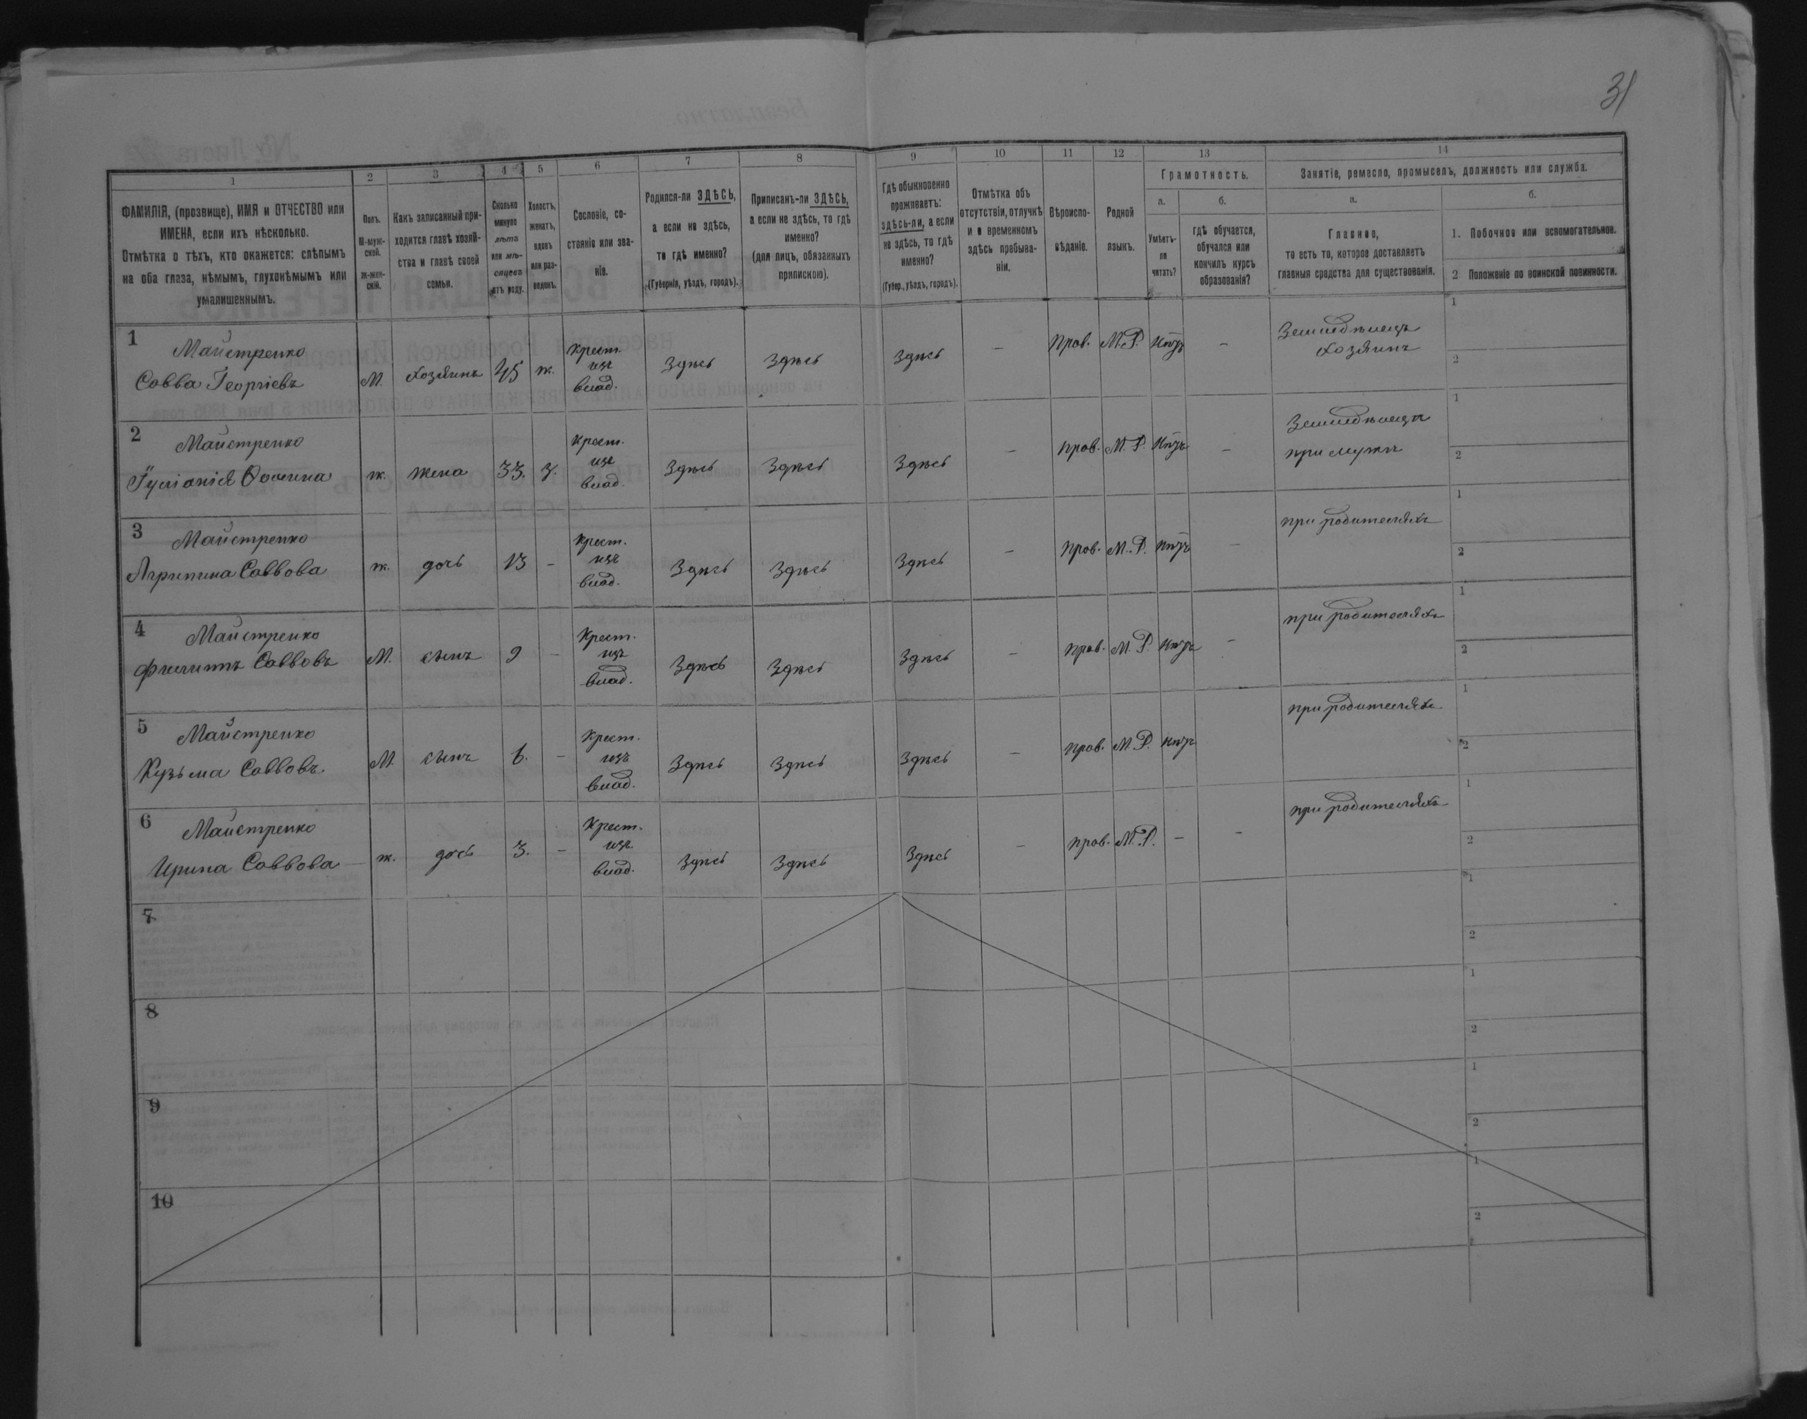 31
1
2
3
4
5
6
7
8
9
10
11
12
13
14
ФАМИЛІЯ, (прозвище), ИМЯ и ОТЧЕСТВО или
ИМЕНА, если ихъ нѣсколько.
Отмѣтка о тѣхъ, кто окажется: слѣпымъ
на оба глаза, нѣмымъ, глухонѣмымъ или
умалишеннымъ.
Полъ.
М-муж-
ской.
Ж-жен-
скій.
Какъ записанный при-
ходится главѣ хозяй-
ства и главѣ своей
семьи.
Сколько
минуло
лѣтъ
или мѣ-
сяцевъ
отъ роду.
Холостъ,
женатъ,
вдовъ
или раз-
веденъ.
Сословіе, со-
стояніе или зва-
ніе.
Родился-ли ЗДѢСЬ,
а если не здѣсь,
то гдѣ именно?
(Губернія, уѣздъ, городъ).
Приписанъ-ли ЗДѢСЬ,
а если не здѣсь, то гдѣ
именно?
(для лицъ, обязанныхъ
припискою).
Гдѣ обыкновенно
проживаетъ:
здѣсь-ли, а если
не здѣсь, то гдѣ
именно?
(Губер., уѣздъ, городъ).
Отмѣтка объ
отсутствіи, отлучкѣ
и о временномъ
здѣсь пребыва-
ніи.
Вѣроиспо-
вѣданіе.
Родной
языкъ.
Грамотность.
а.
б.
Умѣетъ-
ли
читать?
гдѣ обучается,
обучался или
кончилъ курсъ
образованія?
Занятіе, ремесло, промыселъ, должность или служба.
а.
б.
Главное,
то есть то, которое доставляетъ
главныя средства для существованія.
1. Побочное или вспомогательное.
2 Положеніе по воинской повинности.
1
Майстренко
Савва Георгіевъ
М. хозяинъ 45 ж.
Крест.
изъ
влад.
Здѣсь Здѣсь Здѣсь – Прав. М.Р. нѣтъ –
Земледѣлецъ
хозяинъ
1
2
2
Майстренко
ж. жена 33. з.
Крест.
изъ
влад.
Здѣсь Здѣсь Здѣсь – Прав. М.Р. нѣтъ –
Земледѣлецъ
при мужѣ
1
2
3
Майстренко
Агрипина Саввова
ж. дочь 13 –
Крест.
изъ
влад.
Здѣсь Здѣсь Здѣсь – Прав. М.Р. нѣтъ –
при родителяхъ
1
2
4
Майстренко
Филиппъ Саввовъ
М. сынъ 9 –
Крест.
изъ
влад.
Здѣсь Здѣсь Здѣсь – Прав. М.Р. нѣтъ –
при родителяхъ
1
2
5
Майстренко
Кузьма Саввовъ.
М. сынъ 6. –
Крест.
изъ
влад.
Здѣсь Здѣсь Здѣсь – Прав. М.Р. нѣтъ
при родителяхъ
1
2
6
Майстренко
Ирина Саввова
ж. дочь 3. –
Крест.
изъ
влад.
Здѣсь Здѣсь Здѣсь – Прав. М.Р. – –
при родителяхъ
1
2
7
1
2
8
1
2
9
1
2
10
1
2